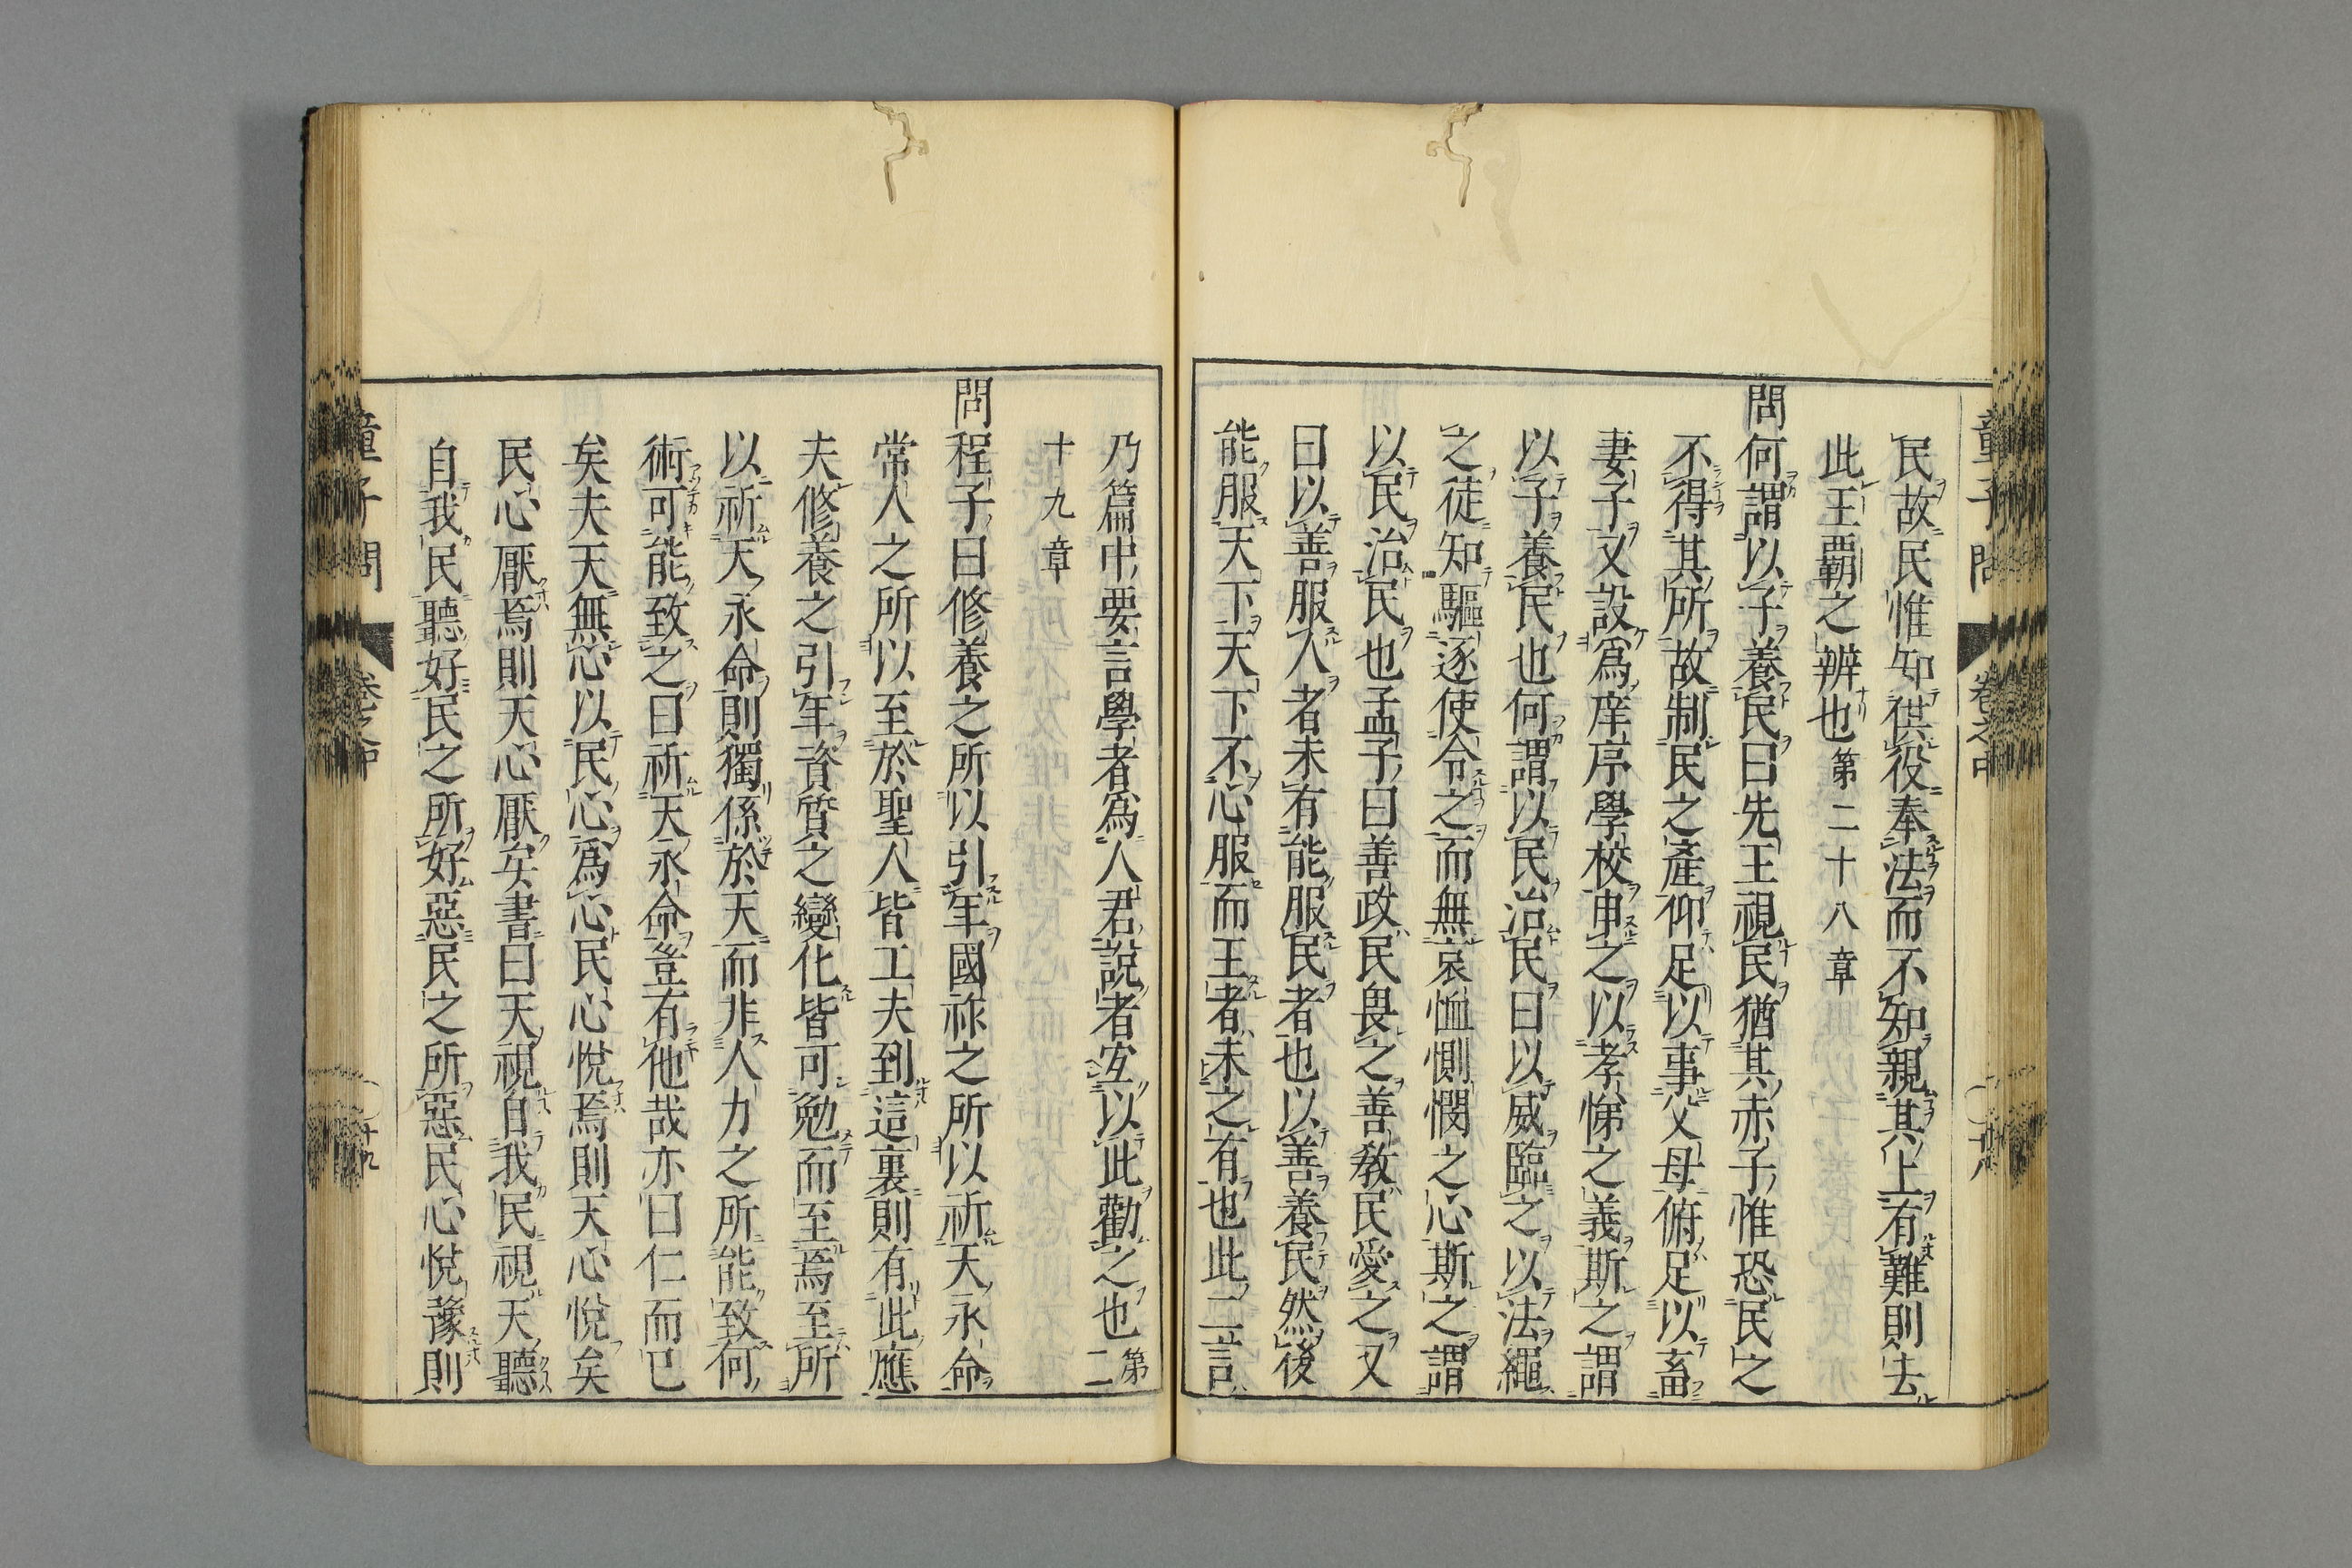 童子問 卷之中
民故民惟知供役奉法而不知親其上有難則去
此王霸之辨也第二十八章
問何謂以子養民曰先王視民猶其赤子惟恐民之
不得其所故制民之產仰足以事父母俯足以畜
妻子又設爲庠序學校申之以孝悌之義斯之謂
以子養民也何謂以民治民曰以威臨之以法繩
之徒知驅逐使令之而無哀恤惻憫之心斯之謂
以民治民也孟子曰善政民畏之善教民愛之又
曰以善服人者未有能服民者也以善養民然後
能服天下天下不心服而王者未之有也此二言
乃篇中要言學者爲人君說者宜以此勸之也第二
十九章
問程子曰修養之所以引年國祚之所以祈天永命
常人之所以至於聖人皆工夫到這裏則有此應
夫修養之引年資質之變化皆可勉而至焉至所
以祈天永命則獨係於天而非人力之所能致何
術可能致之曰祈天永命豈有他哉亦曰仁而已
矣夫天無心以民心爲心民心悅焉則天心悅矣
民心厭焉則天心厭矣書曰天視自我民視天聽
自我民聽好民之所好惡民之所惡民心悅豫則
童子問 卷之中 十九